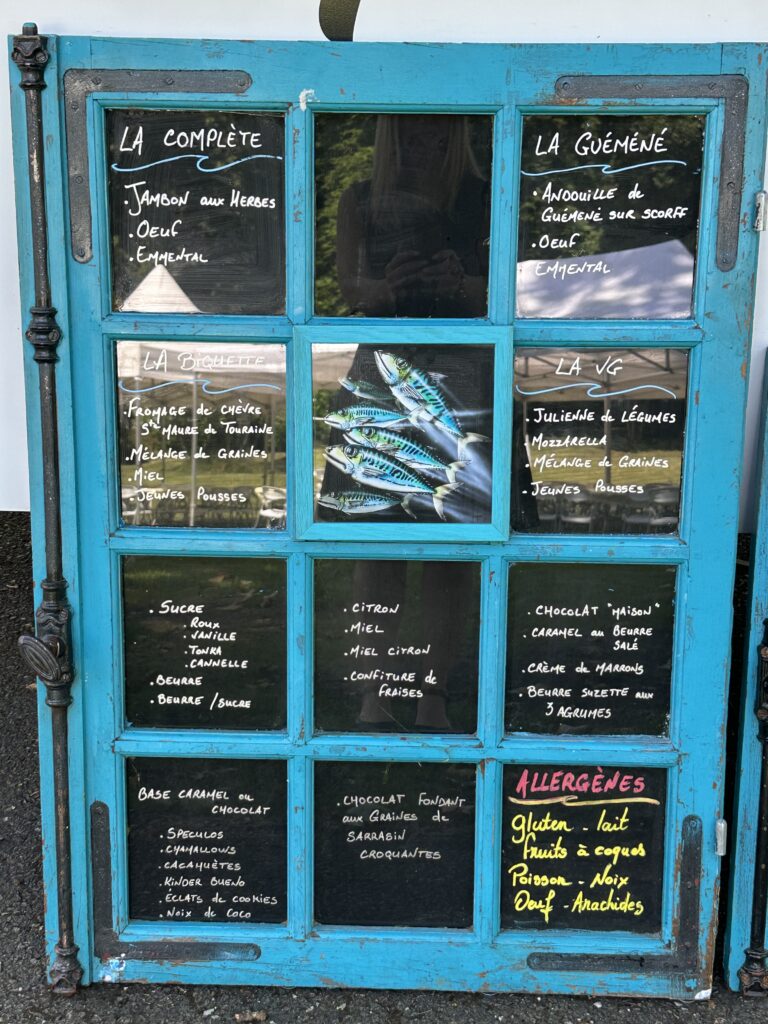 LA COMPLÈTE
. JAMBON AUX HERBES
. OEUF
. EMMENTAL
LA GUÉMÉNÉ
. ANDOUILLE de
GUÉMENÉ SUR SCORFF
. OEUF
EMMENTAL
LA BIQUETTE
. FROMAGE de CHÈVRE
Ste MAURE de TOURAINE
. MÉLANGE de GRAINES
. MIEL
. JEUNES POUSSES
LA VG
. JULIENNE de LÉGUMES
. MOZZARELLA
. MÉLANGE de GRAINES
. JEUNES POUSSES
. SUCRE
. ROUX
. VANILLE
. TONKA
. CANNELLE
. BEURRE
. BEURRE / SUCRE
. CITRON
. MIEL
. MIEL CITRON
. CONFITURE de
FRAISES
. CHOCOLAT "MAISON"
. CARAMEL au BEURRE
SALÉ
. CRÈME de MARRONS
. BEURRE SUZETTE aux
3 AGRUMES
BASE CARAMEL ou
CHOCOLAT
. SPECULOS
. CHAMALLOWS
. CACAHUÈTES
. KINDER BUENO
. ÉCLATS de COOKIES
. NOIX de COCO
. CHOCOLAT FONDANT
aux GRAINES de
SARRASIN
CROQUANTES
ALLERGÈNES
Gluten - lait
fruits à coques
Poisson - Noix
Oeuf - Arachides